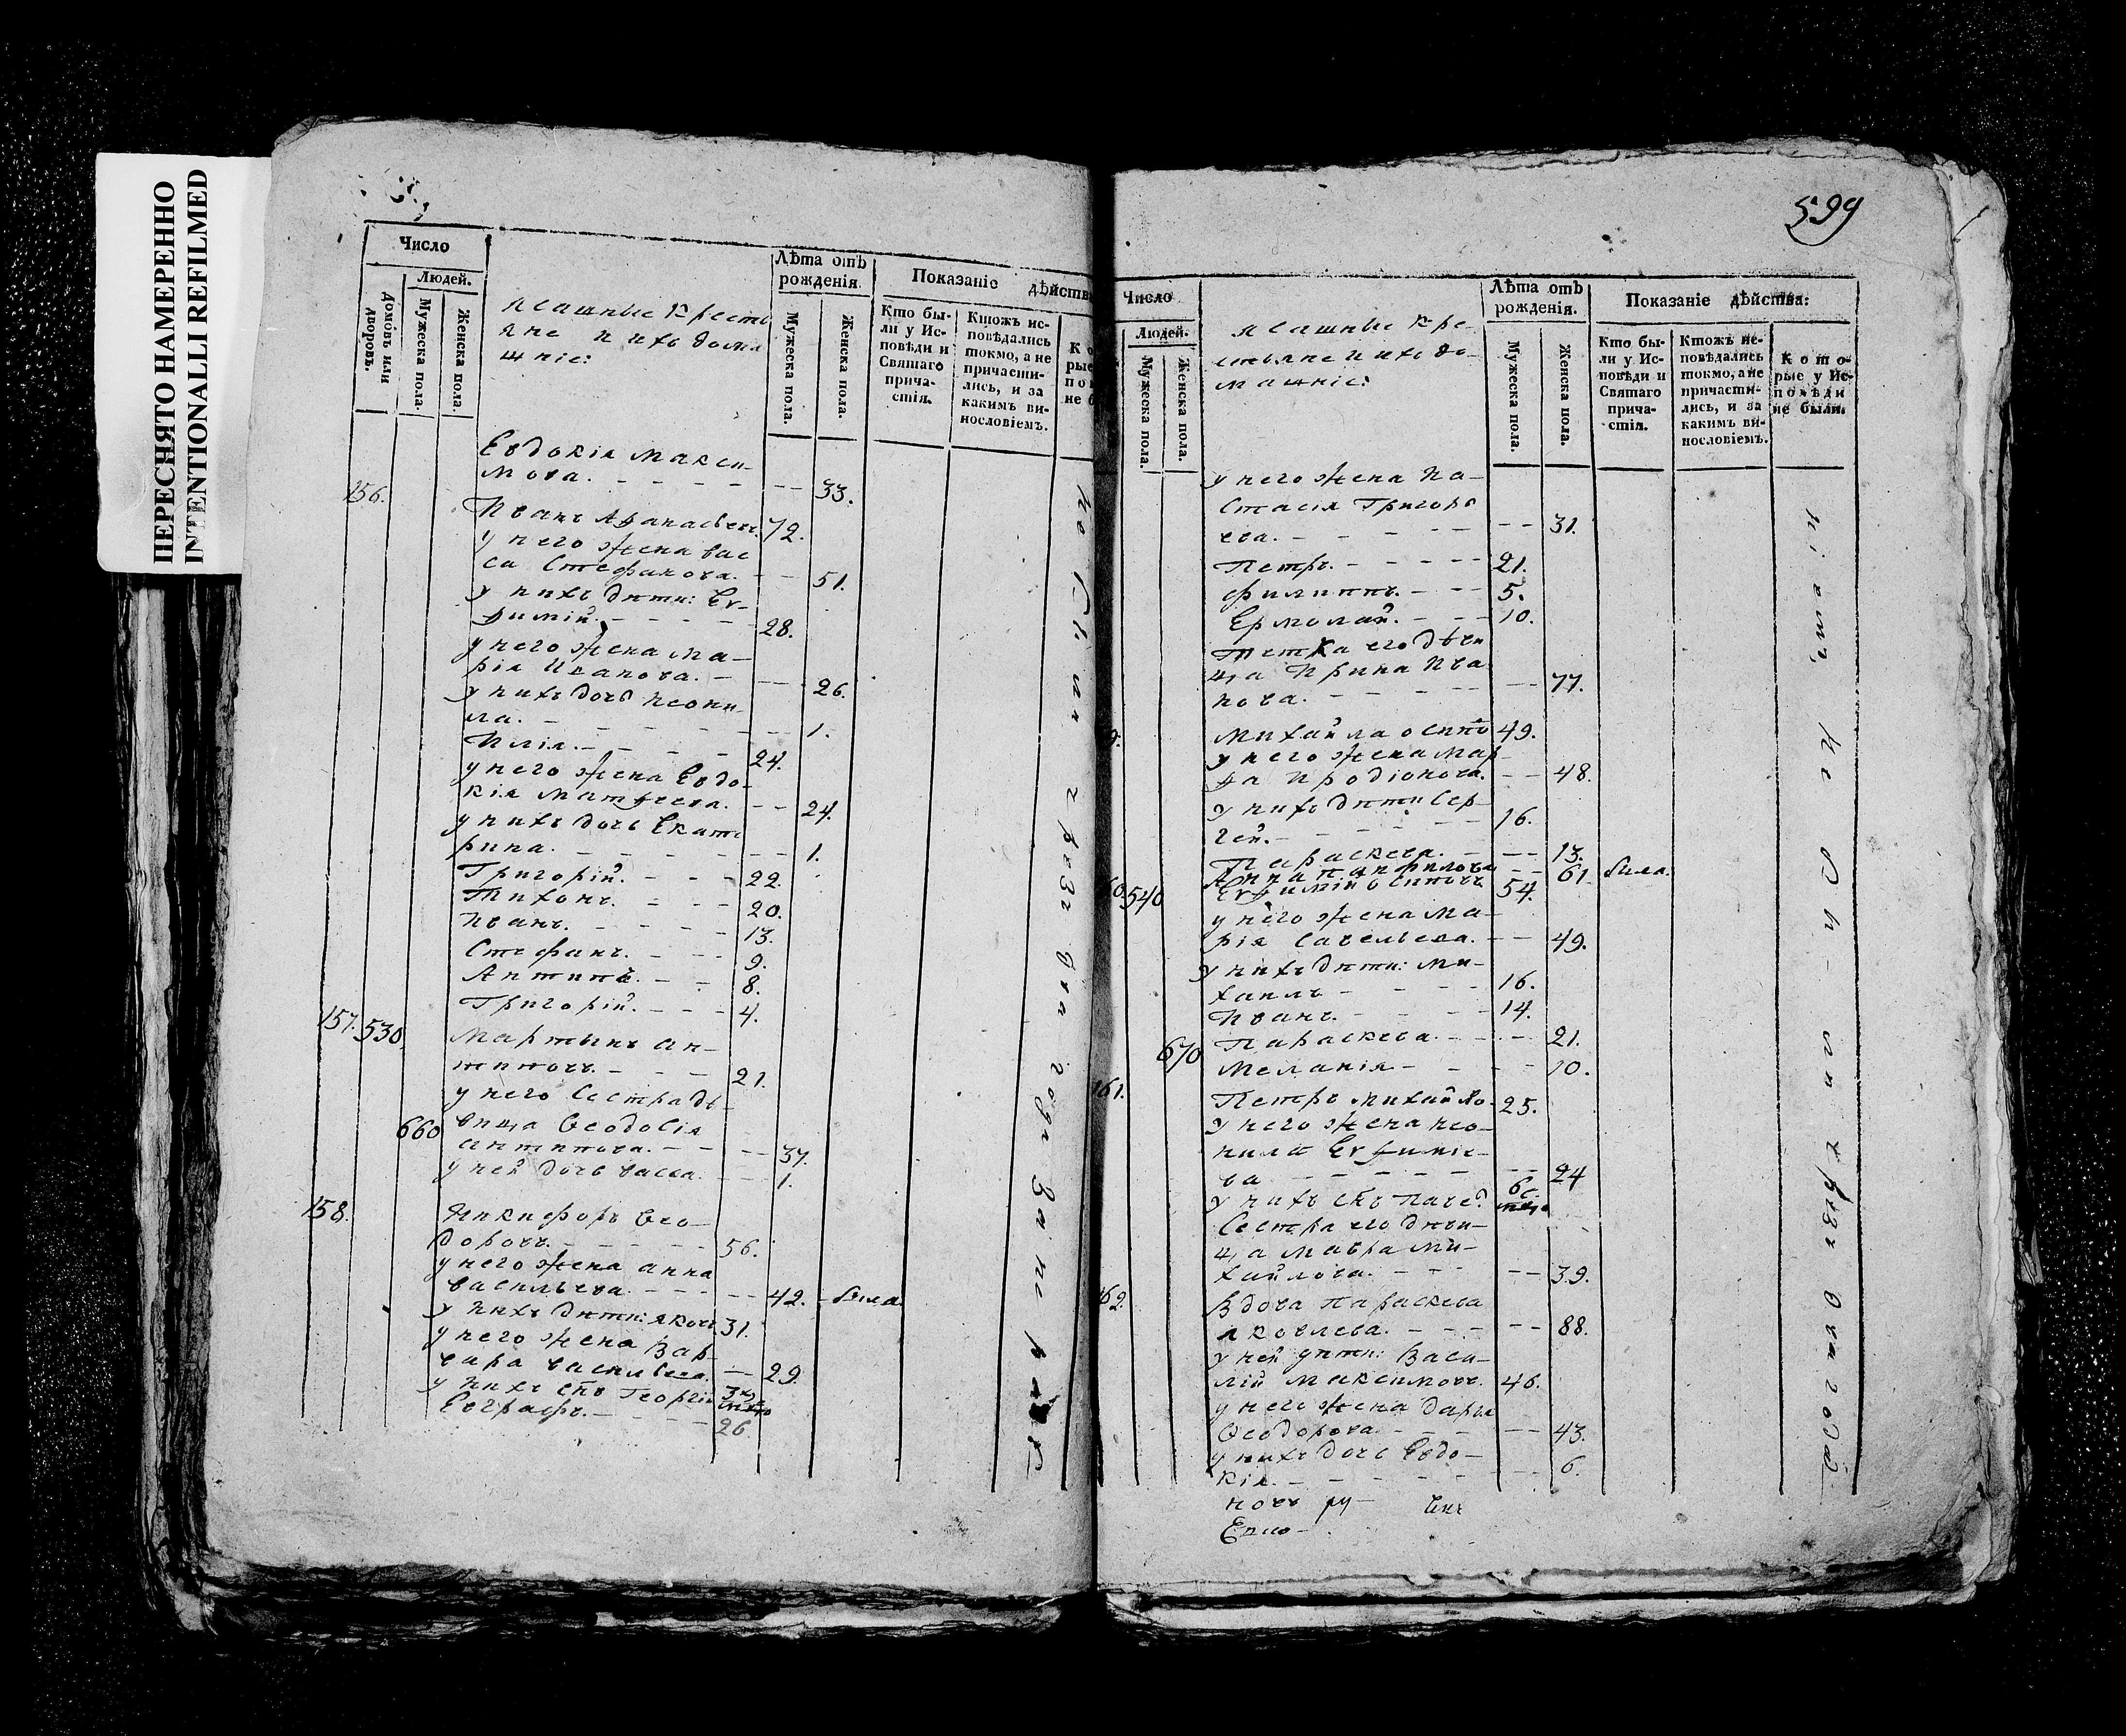 ПЕРЕСНЯТО НАМЕРЕННО
INTENTIONALLI REFILMED
Число
Людей.
Домовъ или дворовъ.
Мужеска пола.
Женска пола.
ясашные Крестья
яне и ихъ дома
шніе:
Лѣта отъ
рожденія
Мужеска пола.
Женска пола.
Показаніе дѣйства
Кто бы-
ли у Ис-
повѣди и
Святаго
прича-
стія.
Ктожъ ис-
повѣдались
токмо, а не
причасти-
лись, и за
какимъ ви-
нословіемъ.
Евдокія Макси-
мова. 33.
156.
Иванъ Афанасьевъ. 72.
у него жена вас
са Стефанова. 51.
у нихъ дѣти: Ев-
фимій. 28.
у него жена Ма-
рія Иванова. 26.
у нихъ дочь Неони-
ла. 1.
Илія. 24.
у него жена Евдо-
кія Матфеева. 24.
у нихъ дочь Екате
рина. 1.
Григорій. 22.
Тихонъ. 20.
Иванъ. 13.
Стефанъ. 9.
Антипъ. 8.
Григорій. 4.
157. 530.
Мартынъ Ан-
типовъ. 21.
у него Сестра дѣ-
660 вица Ѳеодосія
антипова. 37.
у ней дочь васса. 1.
158.
Никифоръ Ѳео-
доровъ. 56.
у него жена анна
васильева. 42. была
у нихъ дѣти: яковъ 31.
у него жена Вар-
вара васильева. 29.
у нихъ сынъ Георгій
Евграфъ. 26
599
Число
Людей.
Мужеска пола.
Женска пола.
ясашные Кре-
стьяне и ихъ до-
машніе:
Лѣта отъ
рожденія.
Мужеска пола.
Женска пола.
Показаніе дѣйства:
Кто бы-
ли у Ис-
повѣди и
Святаго
прича-
стія.
Ктожъ ис-
повѣдались
токмо, а не
причасти-
лись, и за
какимъ ви-
нословіемъ.
Кото-
рые у Ис-
повѣди
не были.
у него жена На-
стасія Григорь
ева. 31.
Петръ. 21.
филиппъ. 5.
Ермолай. 10.
тетка его дѣви
ца Ирина Ива
нова. 77.
Михайла осипо 49.
у него жена Мар-
фа Иродіонова. 48.
у нихъ дѣти Сер-
гей. 16.
Параскева. 13.
Анна панфилова 61. была.
540
Евфимій осиповъ 54.
у него жена Ма-
рія Савельева. 49.
у нихъ дѣти: Ми-
хаилъ 16.
Иванъ. 14.
670 Параскева. 21.
Меланія 10.
161.
Петръ Михайло. 25.
у него жена Нео-
нила Евфиміе-
ва 24
у нихъ сынъ Павел
Сестра его дѣви-
ца Мавра Ми-
хайлова. 39.
Вдова Параскева
яковлева. 88.
у ней дѣти: Васи-
лій Максимовъ. 46.
у него жена Дарья
Ѳеодорова. 43.
у нихъ дочь Евдо-
кія. 6.